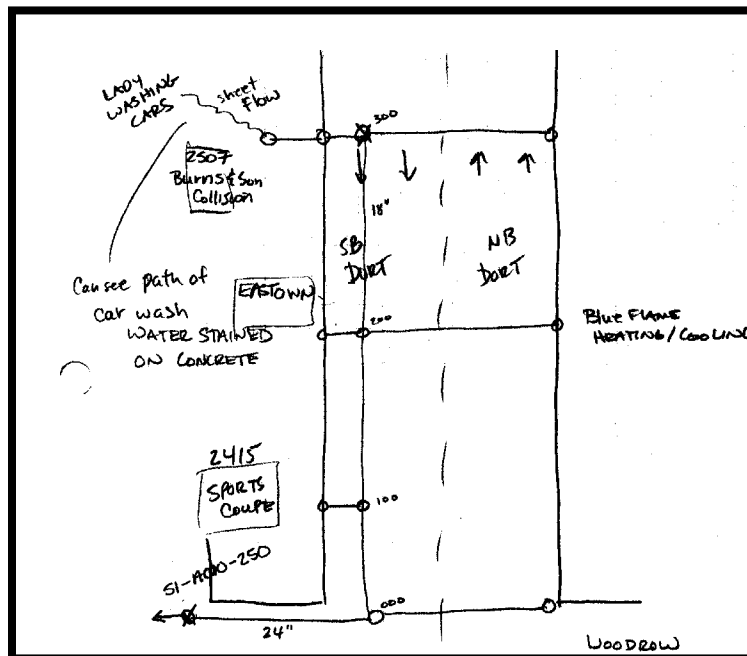 LADY
WASHING
CARS
sheet
flow
300
2507
Burns & Son
Collision
18"
SB
DORT
NB
DORT
Can see path of
car wash
WATER STAINED
ON CONCRETE
EASTOWN
200
Blue FLAME
HEATING/COOLING
2415
SPORTS
COUPE
100
SI-A00-250
000
24"
WOODROW